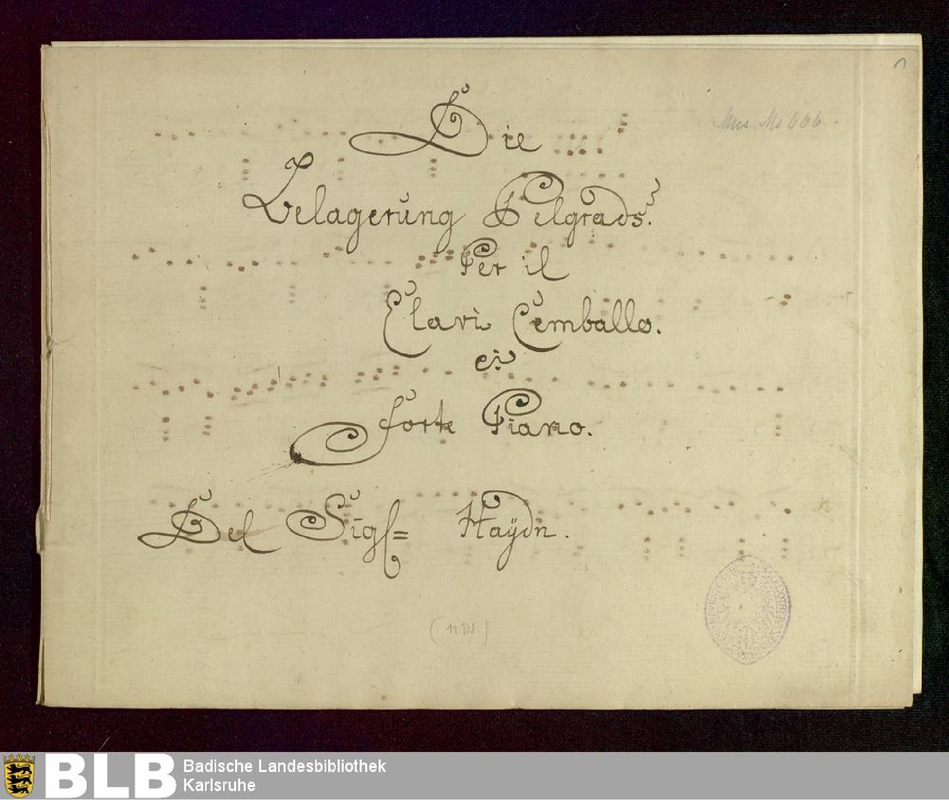 1
Mus. Ms 666
Die
Belagerung Belgrads.
Per il
Clavi Cemballo.
ei
Forte Piano.
Del Sigl= Haÿdn.
BLB Badische Landesbibliothek
Karlsruhe